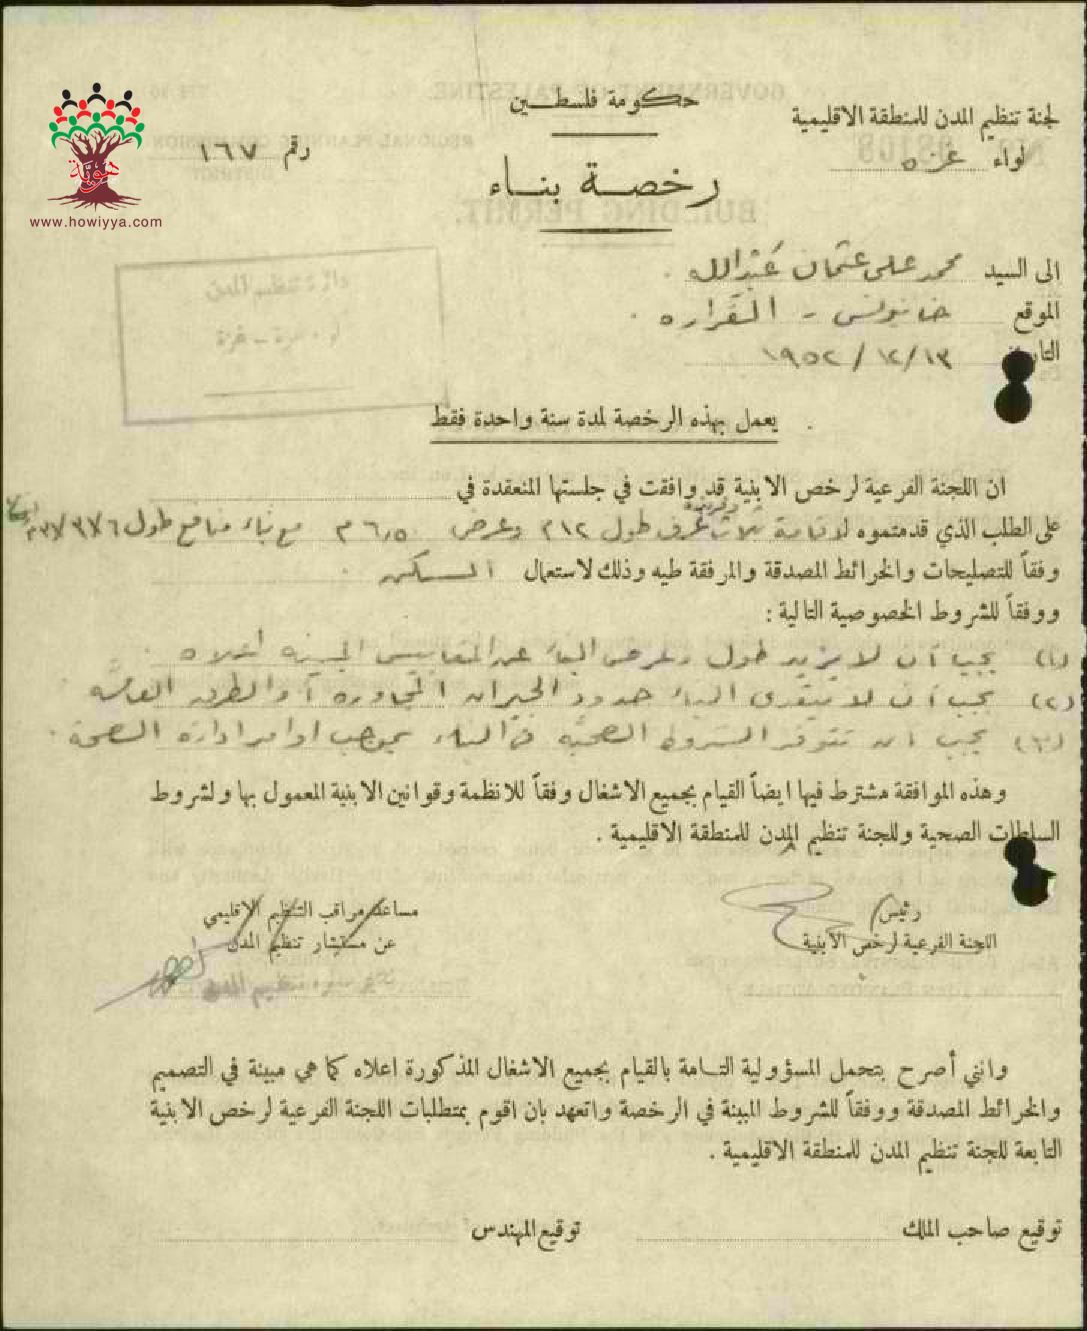 حكومة فلسطين
لجنة تنظيم المدن للمنطقة الاقليمية
لواء غزه
رقم ١٦٧
هوية
www.howiyya.com
رخصة بناء
الى السيد محمد علي عثمان عبدالله .
الموقع خانيونس - القراره .
التاريخ ١٣/١٢/١٩٥٢
دائرة تنظيم المدن
لواء غزة - غزة
يعمل بهذه الرخصة لمدة سنة واحدة فقط
ان اللجنة الفرعية لرخص الابنية قد وافقت في جلستها المنعقدة في
على الطلب الذي قدمتموه لاقامة ثلاث غرف طول ١٢م وعرض ٦,٥٠ م مع بناء منافع طول
وفقاً للتصليحات والخرائط المصدقة والمرفقة طيه وذلك لاستعمال السكن .
ووفقاً للشروط الخصوصية التالية :
(١) يجب أن لا يزيد طول وعرض البناء عن المقاييس المبينه اعلاه .
(٢) يجب أن لا يتعدى البناء حدود الجيران المجاوره أو الطرق العامه
(٣) يجب ان تتوفر الشروط الصحيه في البناء بموجب اوامر ادارة الصحة .
وهذه الموافقة مشترط فيها ايضاً القيام بجميع الاشغال وفقاً للانظمة وقوانين الابنية المعمول بها ولشروط
السلطات الصحية وللجنة تنظيم المدن للمنطقة الاقليمية .
رئيس
اللجنة الفرعية لرخص الابنية
مساعد مراقب التنظيم الاقليمي
عن مستشار تنظيم المدن
وانني أصرح بتحمل المسؤولية التامة بالقيام بجميع الاشغال المذكورة اعلاه كما هي مبينة في التصميم
والخرائط المصدقة ووفقاً للشروط المبينة في الرخصة واتعهد بان اقوم بمتطلبات اللجنة الفرعية لرخص الابنية
التابعة للجنة تنظيم المدن للمنطقة الاقليمية .
توقيع صاحب الملك
توقيع المهندس